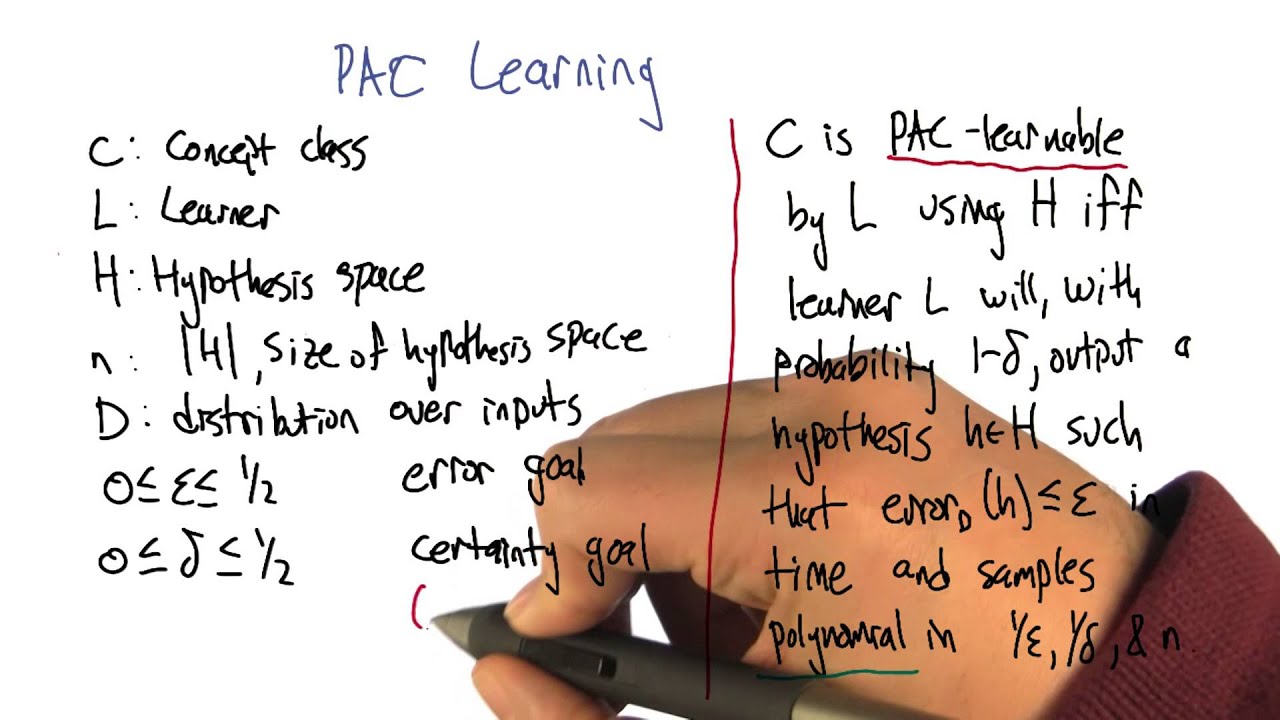 PAC Learning
C: Concept class
L: Learner
H: Hypothesis space
n: |H|, size of hypothesis space
D: distribution over inputs
0 ≤ ε ≤ 1/2 error goal
0 ≤ δ ≤ 1/2 certainty goal
(
C is PAC-learnable
by L using H iff
learner L will, with
probability 1-δ, output a
hypothesis h∈H such
that error_D(h) ≤ ε in
time and samples
polynomial in 1/ε, 1/δ, & n